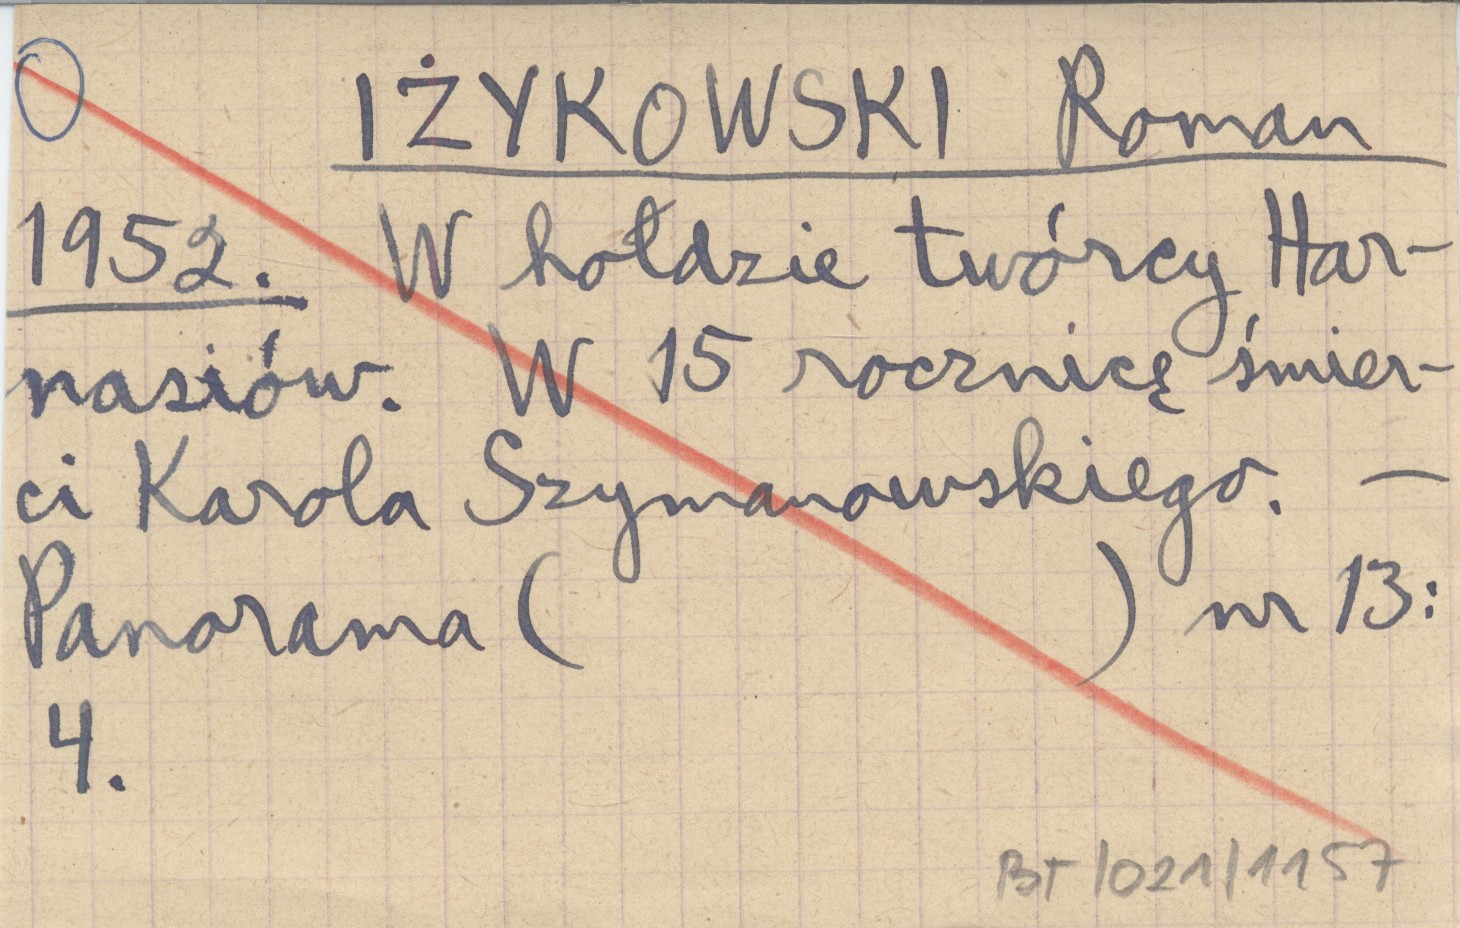 IŻYKOWSKI Roman
1952. W hołdzie twórcy Har-
nasiów. W 15 rocznicę śmier-
ci Karola Szymanowskiego. —
Panorama ( ) nr 13:
4.
BT/021/1157